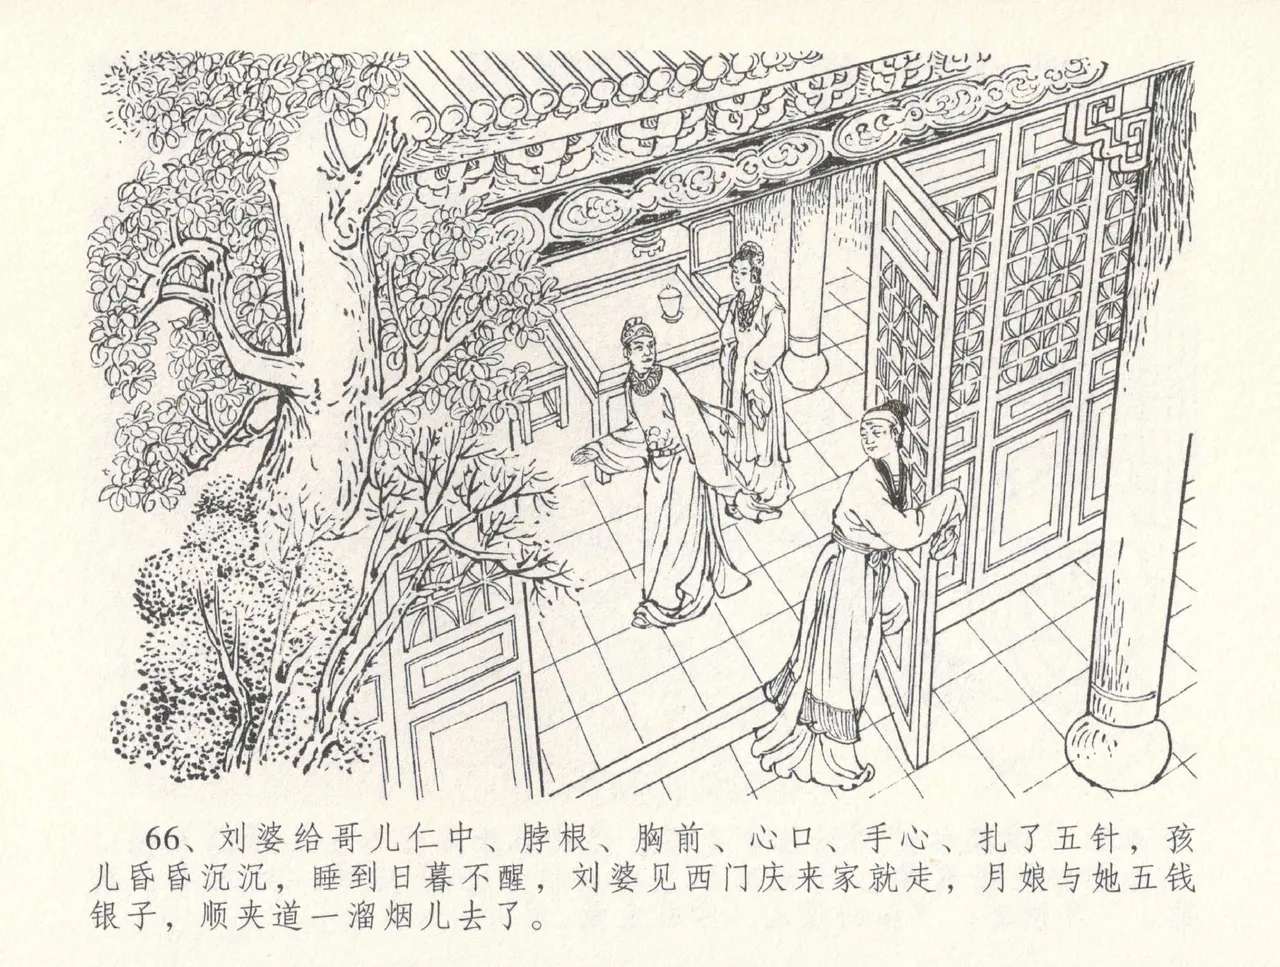 66、刘婆给哥儿仁中、脖根、胸前、心口、手心、扎了五针，孩
儿昏昏沉沉，睡到日暮不醒，刘婆见西门庆来家就走，月娘与她五钱
银子，顺夹道一溜烟儿去了。